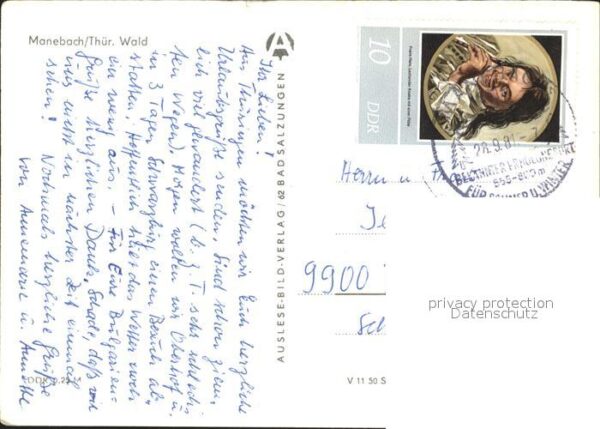 Manebach/Thür. Wald
Ihr Lieben!
Aus Thüringen möchten wir Euch herzliche
Urlaubsgrüße senden. Sind schon ziem-
lich viel gewandert (b. z. T. sehr schlech-
ten Wegen). Morgen wollen wir Oberhof u.
in 3 Tagen Schwarzburg einen Besuch ab-
statten. Hoffentlich hält das Wetter noch
ein wenig aus. – Für Eure Bulgarien-
grüße herzlichen Dank. Schade, daß wir
uns nicht in nächster Zeit einmal
sehen! Nochmals herzliche Grüße
von Annemarie u.
AUSLESE-BILD-VERLAG · 62 BAD SALZUNGEN
V 11 50 S
10
DDR
28.9.81
955-800m
FÜR SOMMER U. WINTER
Herrn u.
9900
privacy protection
Datenschutz